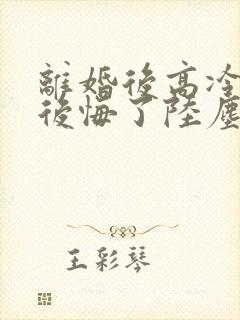 離婚後高冷
後悔了陸塵
王彩琴